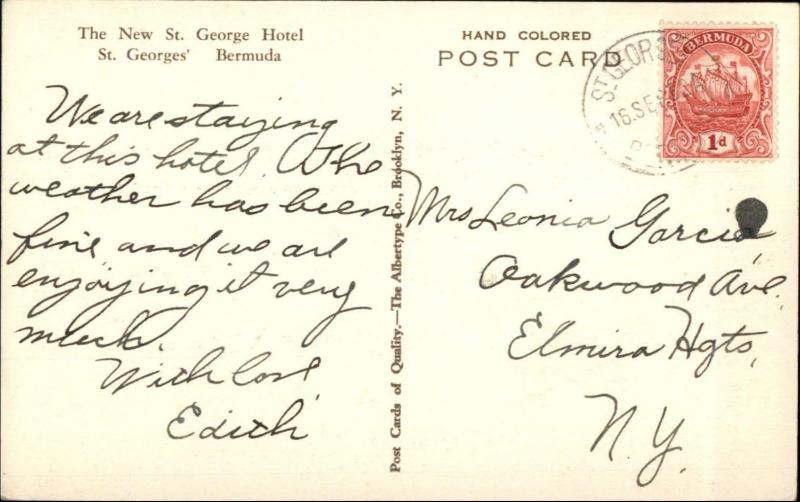 The New St. George Hotel
St. Georges' Bermuda
We are staying
at this hotel. The
weather has been
fine and we are
enjoying it very
much.
With love
Edith
Post Cards of Quality.—The Albertype Co., Brooklyn, N. Y.
HAND COLORED
POST CARD
ST. GEORG
16 SE
BERMUDA
1d
Mrs Leonia Garcia
Oakwood Ave.
Elmira Hgts,
N.Y.